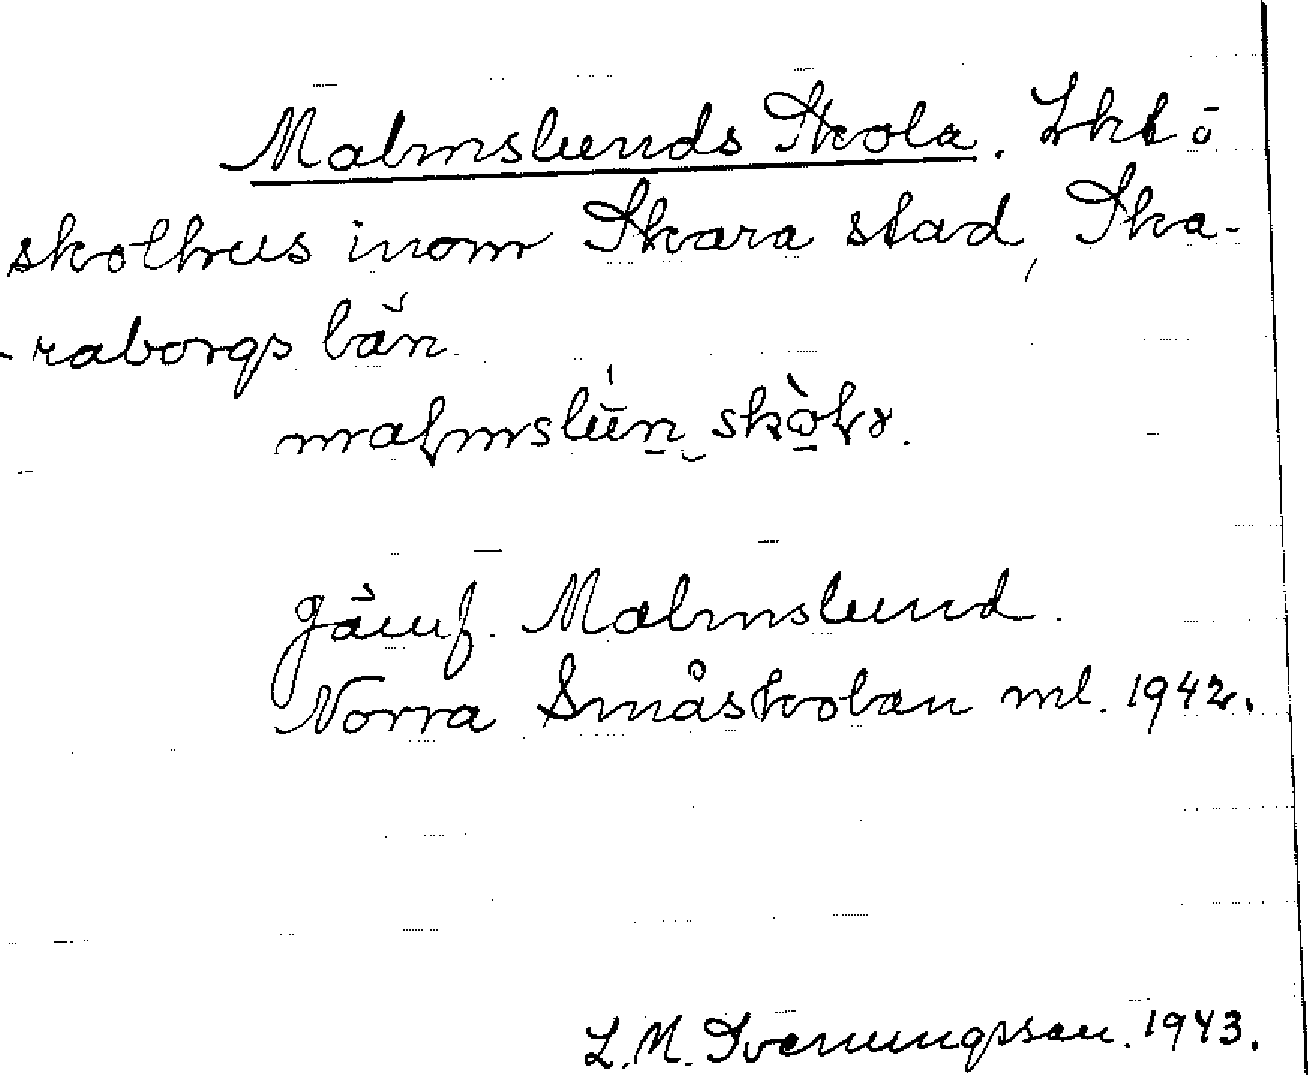 Malmslunds Skola. Lkt ö
skolhus inom Skara stad, Ska-
-raborgs län
Jämf. Malmslund.
Norra Småskolan ml. 1942.
L.M. Svenungsson. 1943.